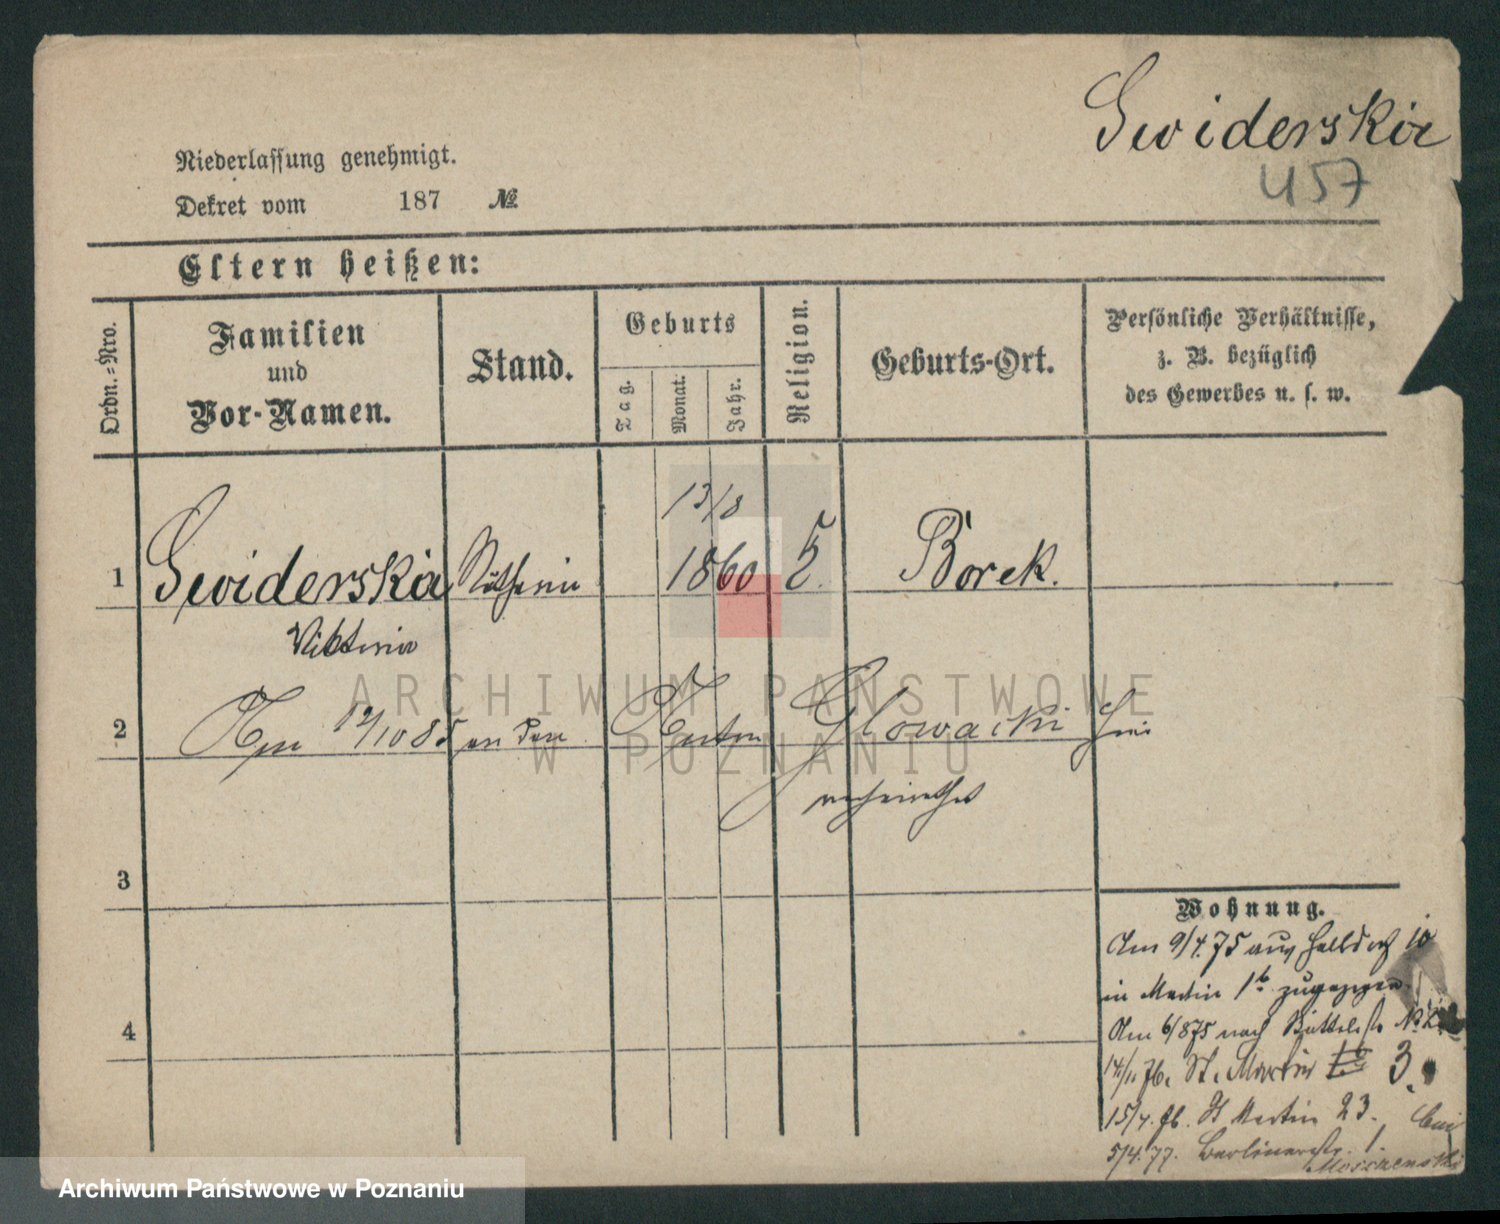 Swiderska
457
Niederlassung genehmigt.
Dekret vom 187 №
Eltern heißen:
Ordn.-Nro.
Familien
und
Vor-Namen.
Stand.
Geburts
Tag.
Monat.
Jahr.
Religion.
Geburts-Ort.
Persönliche Verhältnisse,
z. B. bezüglich
des Gewerbes u. s. w.
13/8
1 Swiderska Nätherin 1860 Borek.
Viktoria
2 Am 12/10 85 an den Glowacki hier
verheirathet
3
4
Wohnung.
Am 9/4.75 aus 10
in Martin 1b zugezogen.
Am 6/875 nach Büttelstr No 2
14/11. 76. St. Martin 3.
15/4. 76. St Martin 23. bei
5/4.77. Berlinerstr. 1.
ARCHIWUM PAŃSTWOWE
W POZNANIU
Archiwum Państwowe w Poznaniu